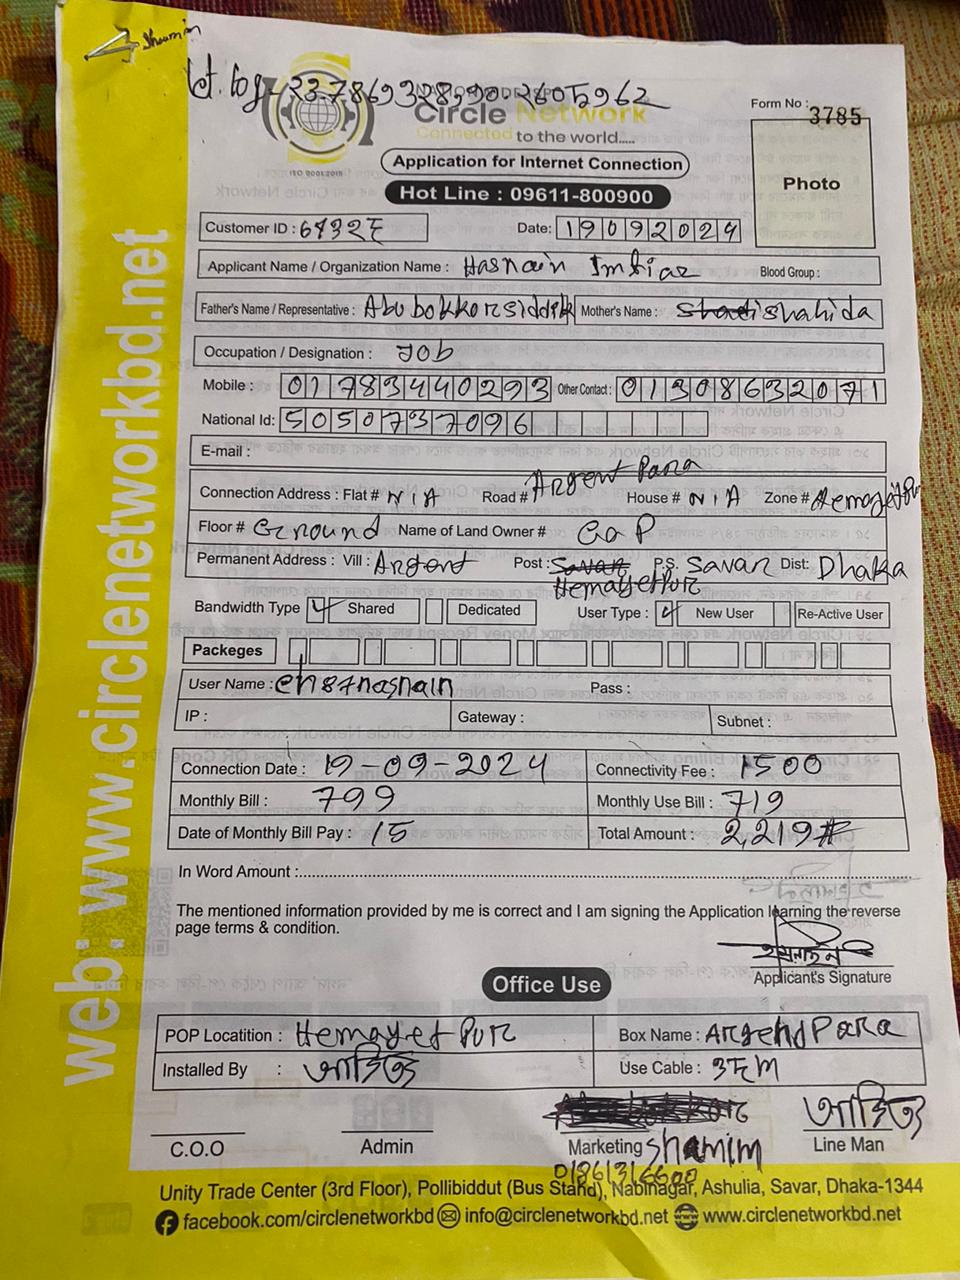 Shamim
Circle Network
Connected to the world.....
ISO 9001:2015
Form No : 3785
Photo
Application for Internet Connection
Hot Line : 09611-800900
Customer ID :
Date: 19092024
Applicant Name / Organization Name : Hasnain Imtiaz Blood Group :
Father's Name / Representative : Abu bokkor siddik Mother's Name : Shahida
Occupation / Designation : Job
Mobile : 01783440293 Other Contact : 01308632071
National Id: 5050737096
E-mail :
Connection Address : Flat # N/A Road # Argent Para House # N/A Zone # Hemayetpur
Floor # Ground Name of Land Owner #
Permanent Address : Vill : Argent Post : Savar Hemayetpur P.S. Savar Dist: Dhaka
Bandwidth Type Shared Dedicated User Type : New User Re-Active User
Packeges
User Name : Pass :
IP : Gateway : Subnet :
Connection Date : 19-09-2024 Connectivity Fee : 1500
Monthly Bill : 799 Monthly Use Bill : 719
Date of Monthly Bill Pay : 15 Total Amount : 2,219
In Word Amount :
The mentioned information provided by me is correct and I am signing the Application learning the reverse
page terms & condition.
Applicant's Signature
Office Use
POP Locatition : Hemayet Pur Box Name : Argend Para
Installed By : Use Cable :
C.O.O Admin Marketing Shamim Line Man
01861316600
Unity Trade Center (3rd Floor), Pollibiddut (Bus Stand), Nabinagar, Ashulia, Savar, Dhaka-1344
facebook.com/circlenetworkbd info@circlenetworkbd.net www.circlenetworkbd.net
web: www.circlenetworkbd.net